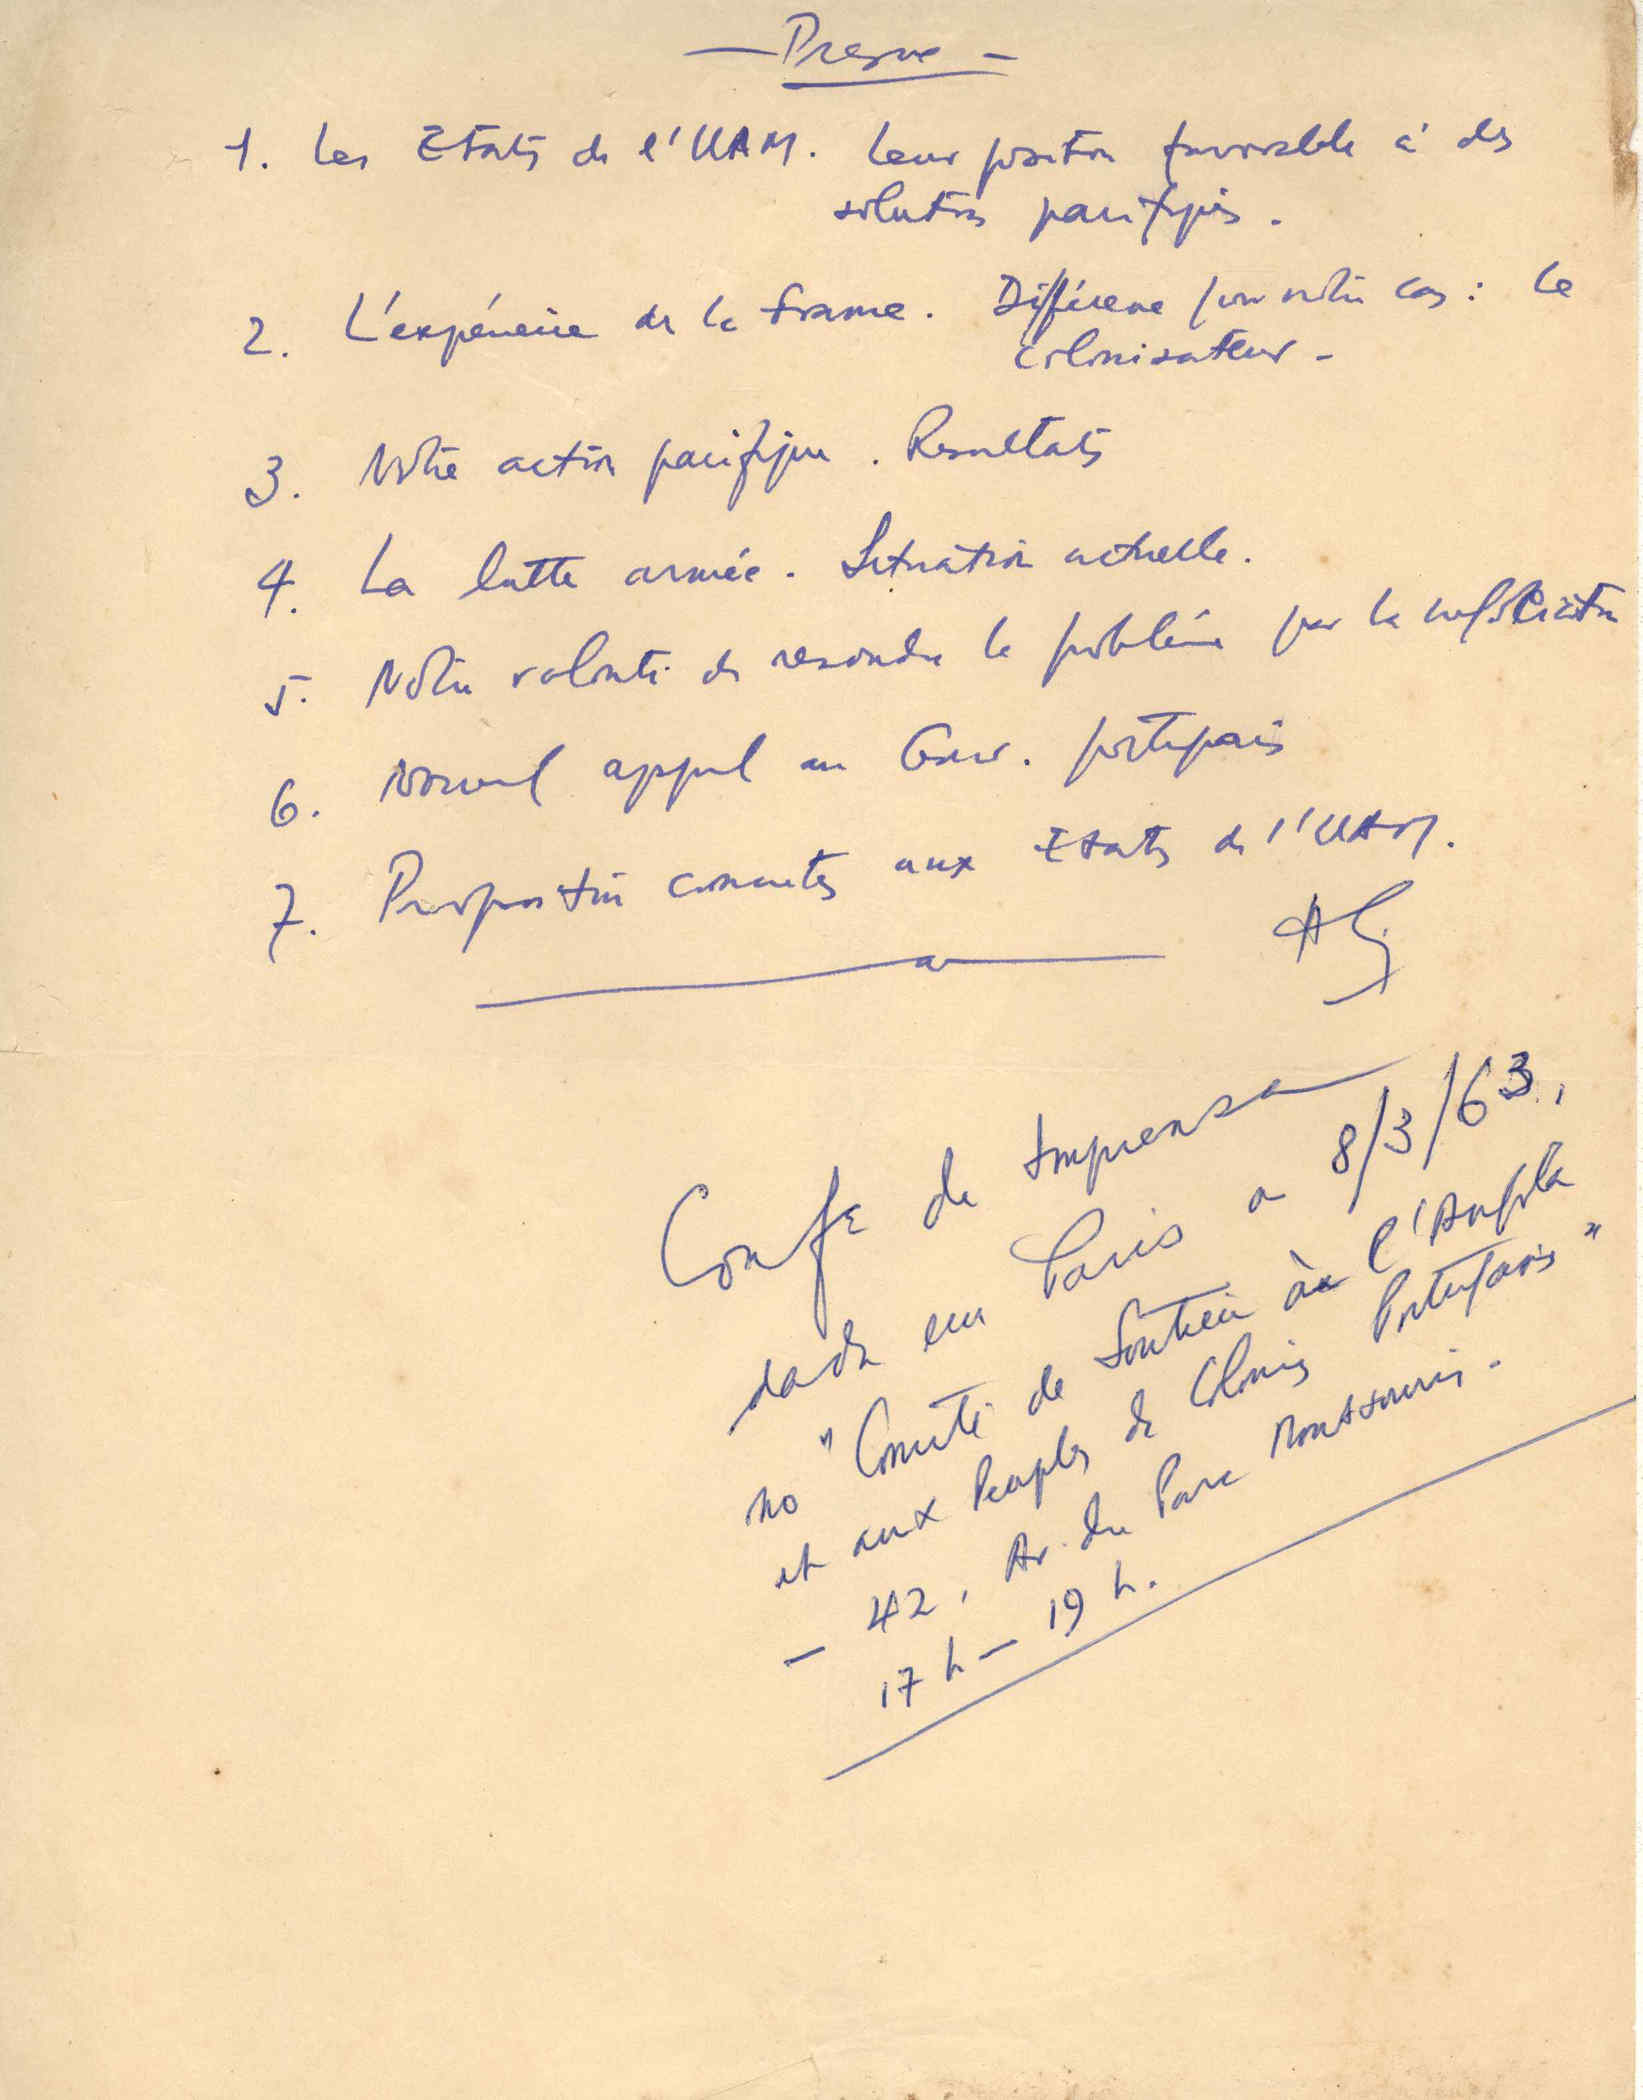 — Presse —
1. Les Etats de l'UAM. Leur position favorable à des
solutions pacifiques.
2. L'expérience de la France. Différence pour notre cas : le
colonisateur -
3. Notre action pacifique. Resultats
4. La lutte armée. Situation actuelle.
5. Notre volonté de resoudre le problème par la négociation
6. Nouvel appel au Gouv. portugais
7. Proposition concretes aux Etats de l'UAM.
Confª de Imprensa
dada em Paris a 8/3/63,
no "Comité de Soutien à l'Angola
et aux Peuples de Colonies Portugaises"
— 42, Av. du Parc Montsouris.
17 h — 19 h.